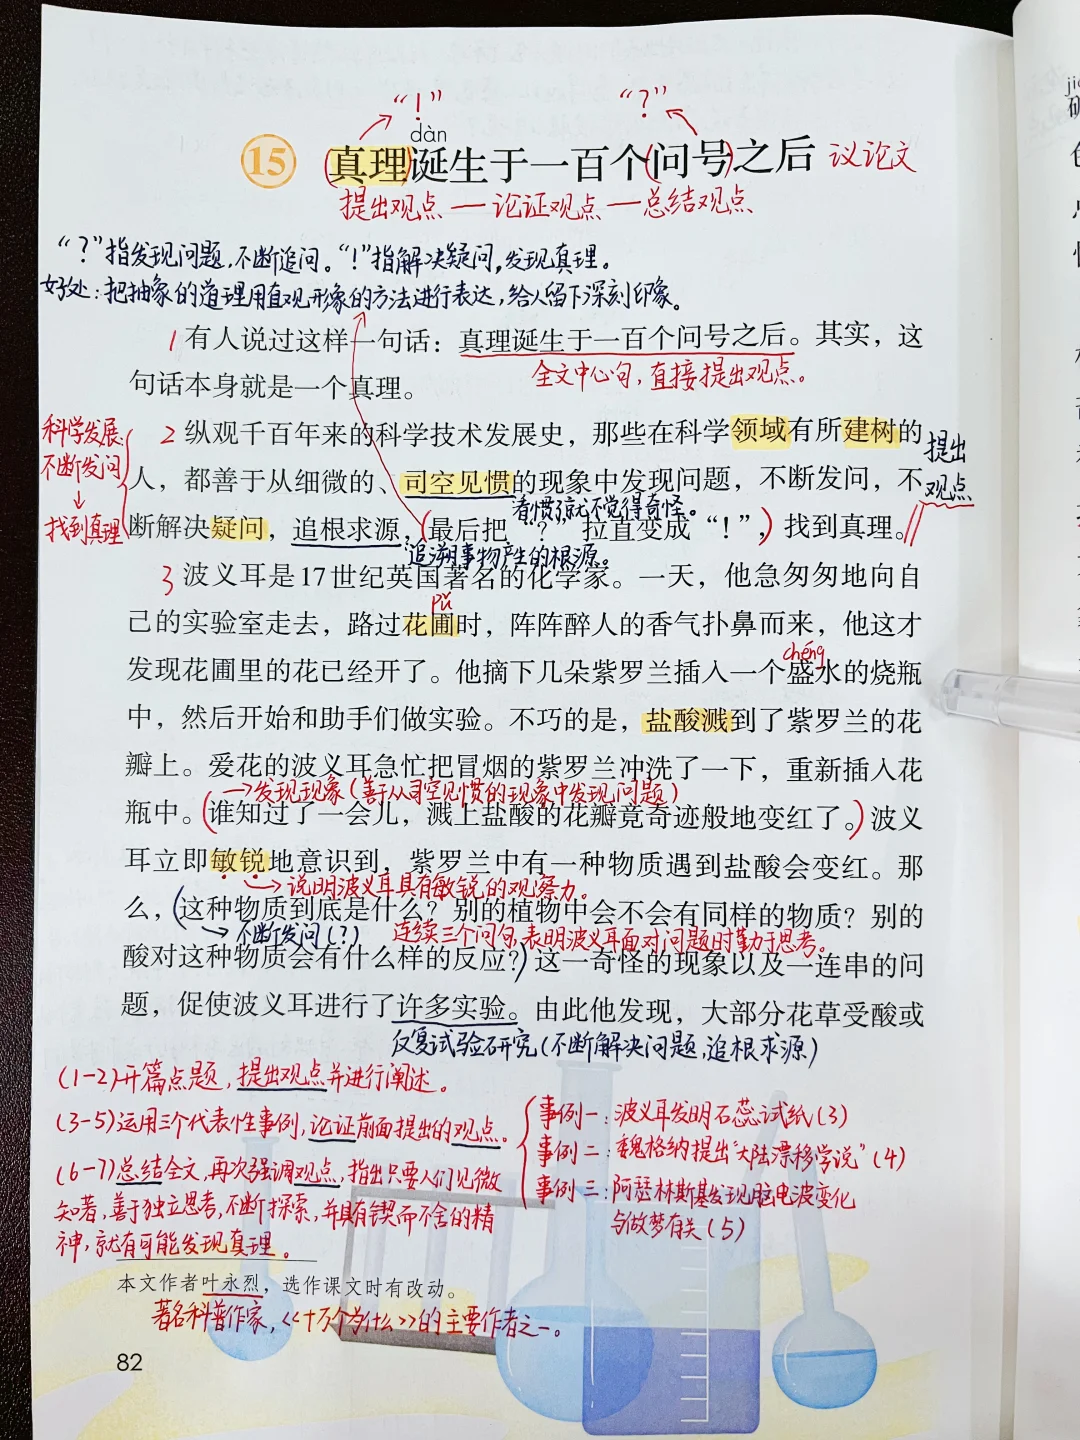 “！” “？”
dàn
15 真理诞生于一百个问号之后 议论文
提出观点—论证观点—总结观点
“？”指发现问题，不断追问。“！”指解决疑问，发现真理。
好处：把抽象的道理用直观形象的方法进行表达，给人留下深刻印象。
1 有人说过这样一句话：真理诞生于一百个问号之后。其实，这
全文中心句，直接提出观点。
句话本身就是一个真理。
科学发展
不断发问
↓
找到真理
2 纵观千百年来的科学技术发展史，那些在科学领域有所建树的
提出
观点
人，都善于从细微的、司空见惯的现象中发现问题，不断发问，不
看惯了就不觉得奇怪。
断解决疑问，追根求源，（最后把“？”拉直变成“！”，）找到真理。
追溯事物产生的根源。
3 波义耳是17世纪英国著名的化学家。一天，他急匆匆地向自
pǔ
己的实验室走去，路过花圃时，阵阵醉人的香气扑鼻而来，他这才
chéng
发现花圃里的花已经开了。他摘下几朵紫罗兰插入一个盛水的烧瓶
中，然后开始和助手们做实验。不巧的是，盐酸溅到了紫罗兰的花
瓣上。爱花的波义耳急忙把冒烟的紫罗兰冲洗了一下，重新插入花
→发现现象（善于从司空见惯的现象中发现问题）
瓶中。（谁知过了一会儿，溅上盐酸的花瓣竟奇迹般地变红了。）波义
耳立即敏锐地意识到，紫罗兰中有一种物质遇到盐酸会变红。那
→说明波义耳具有敏锐的观察力。
么，（这种物质到底是什么？别的植物中会不会有同样的物质？别的
→不断发问（？） 连续三个问句，表明波义耳面对问题时勤于思考。
酸对这种物质会有什么样的反应？）这一奇怪的现象以及一连串的问
题，促使波义耳进行了许多实验。由此他发现，大部分花草受酸或
反复试验研究（不断解决问题，追根求源）
（1-2）开篇点题，提出观点并进行阐述。
（3-5）运用三个代表性事例，论证前面提出的观点。
事例一：波义耳发明石蕊试纸（3）
事例二：魏格纳提出“大陆漂移学说”（4）
事例三：阿瑟林斯基发现脑电波变化
与做梦有关（5）
（6-7）总结全文，再次强调观点，指出只要人们见微
知著，善于独立思考，不断探索，并具有锲而不舍的精
神，就有可能发现真理。
本文作者叶永烈，选作课文时有改动。
著名科普作家，《十万个为什么》的主要作者之一。
82